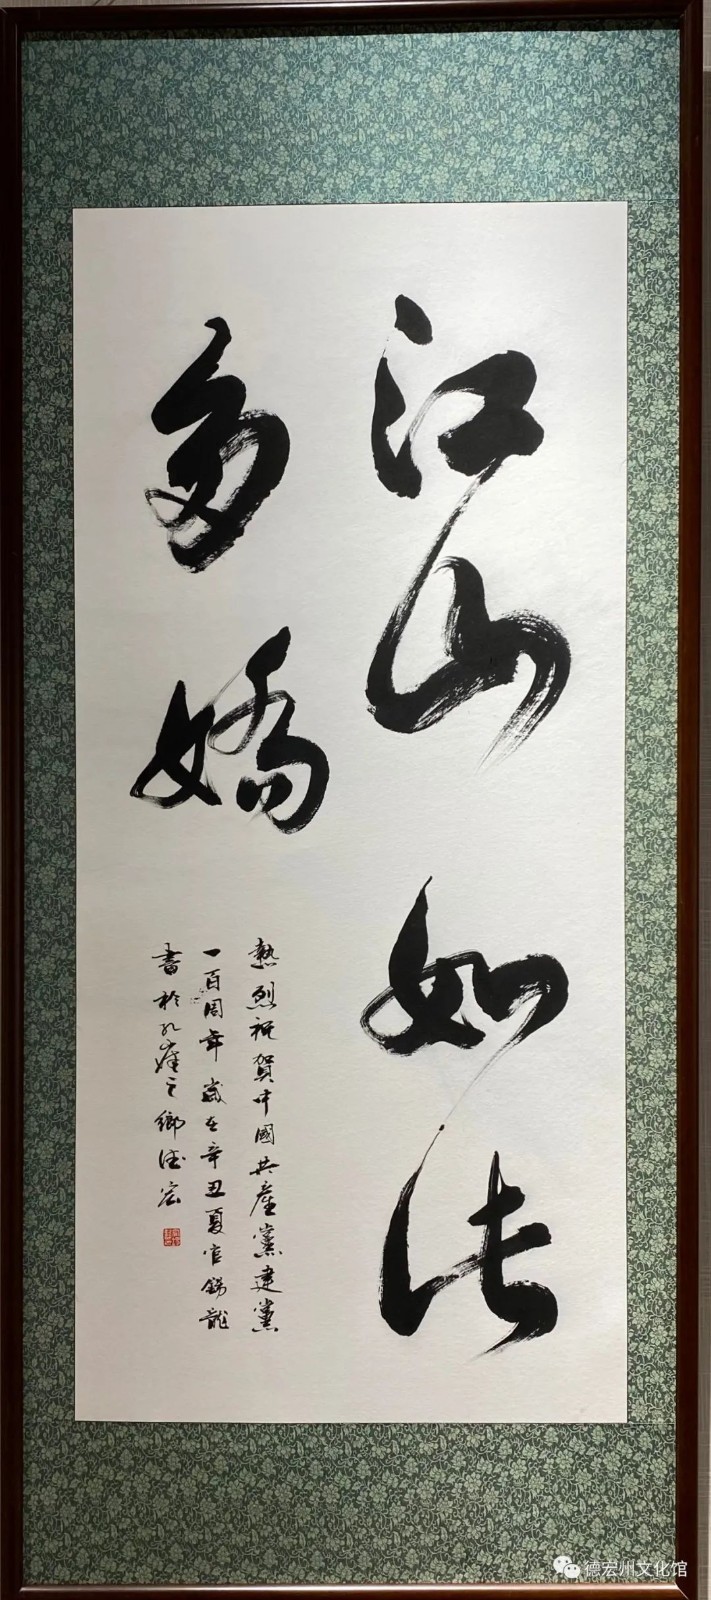 江山如此
多嬌
熱烈祝賀中國共產黨建黨
一百周年歲在辛丑夏官錫龍
書於孔雀之鄉德宏
德宏州文化馆